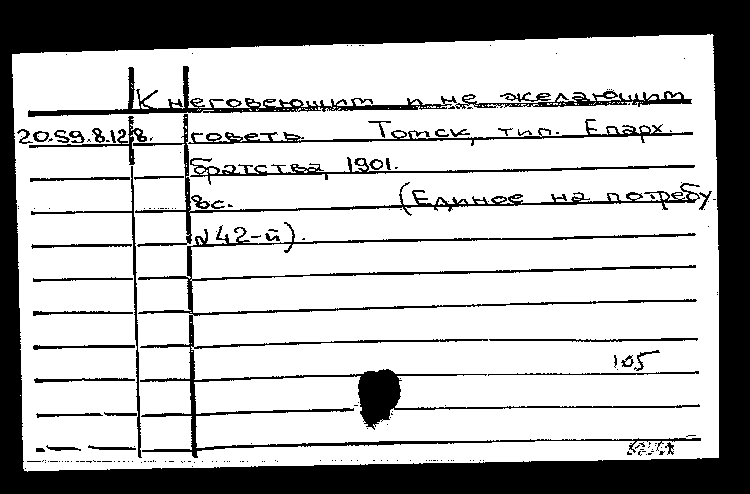 К неговеющим и не желающим
20.59.8.128. говеть. Томск, тип. Епарх.
братства, 1901.
8с. (Единое на потребу.
№42-й).
105